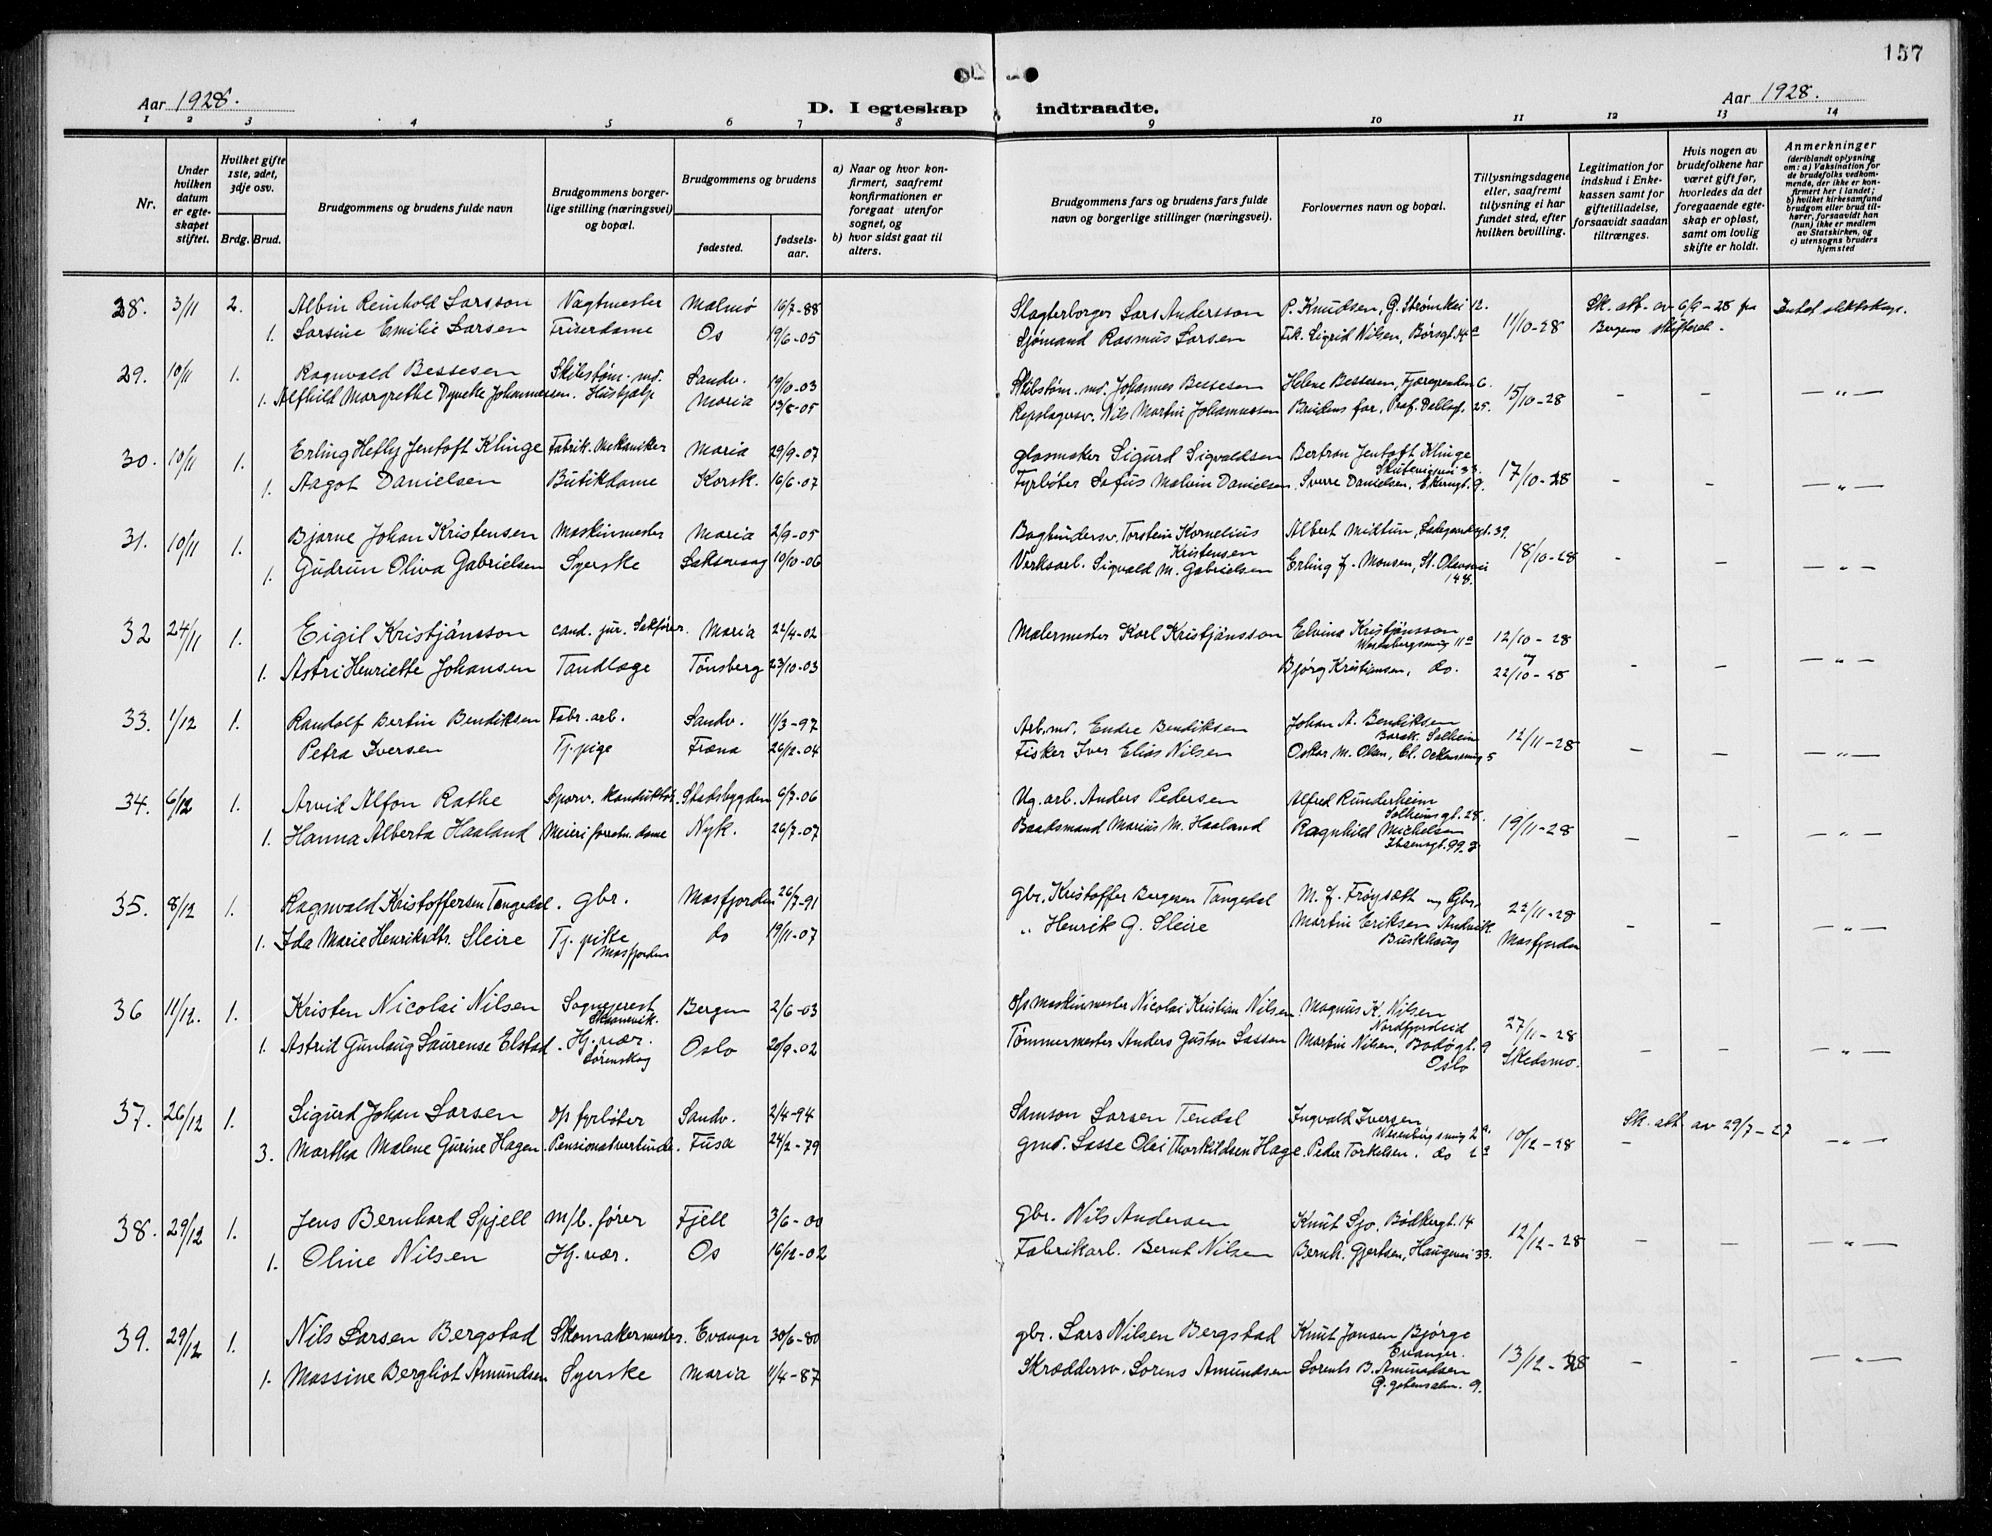 157
Aar 1928.
D. I egteskap indtraadte.
Aar 1928.
1 2 3 4 5 6 7 8 9 10 11 12 13 14
Nr.
Under hvilken datum er egteskapet stiftet.
Hvilket gifte 1ste, 2det, 3dje osv.
Brdg. Brud.
Brudgommens og brudens fulde navn
Brudgommens borgerlige stilling (næringsvei) og bopæl.
Brudgommens og brudens
fødested.
fødselsaar.
a) Naar og hvor konfirmert, saafremt konfirmationen er foregaat utenfor sognet, og
b) hvor sidst gaat til alters.
Brudgommens fars og brudens fars fulde navn og borgerlige stillinger (næringsvei).
Forlovernes navn og bopæl.
Tillysningsdagene eller, saafremt tillysning ei har fundet sted, efter hvilken bevilling.
Legitimation for indskud i Enkekassen samt for giftetilladelse, forsaavidt saadan tiltrænges.
Hvis nogen av brudefolkene har været gift før, hvorledes da det foregaaende egteskap er opløst, samt om lovlig skifte er holdt.
Anmerkninger
(deriblandt oplysning om: a) Vaksination for de brudefolks vedkommende, der ikke er konfirmert her i landet; b) hvilket kirkesamfund brudgom eller brud tilhører, forsaavidt han (hun) ikke er medlem av Statskirken, og c) utensogns bruders hjemsted
28. 3/11 2. Albin Reinhold Larsson Vagtmester Malmø 16/7-88 Slagterborger Lars Andersson P. Knudsen, G. Strømkei 12. 11/10-28 Sk. att. av 6/9-28 fra Intet slektskap.
1. Larsine Emilie Larsen Friserdame Os 19/6-05 Sjømand Rasmus Larsen Frk. Sigrid Nilsen, Børsgt. 14 c Bergens skifteret.
29. 10/11 1. Ragnvald Bessesen Skibstøm. md. Sandv. 19/10-03 Skibstøm. md. Johannes Bessesen Helene Bessesen, Fjæregrenden 6. 15/10-28 - - - „ -
1. Alfhild Margrethe Dynette Johannessen. Hushjælp Maria 13/8-05 Repslagersv. Nils Martin Johannessen Brudens far, Prof. Dahlsgt. 25.
30. 10/11 1. Erling Hefly Jentoft Klinge Fabrik. Mekaniker Maria 29/9-07 Glasmaker Sigurd Sigvaldsen Bertran Jentoft Klinge
Skuteviksvei 33. 17/10-28 - - - „ -
1. Aagot Danielsen Butikdame Korsk. 16/6-07 Fyrbøter Sofus Malvin Danielsen. Sverre Danielsen, Ekrengt. 9.
31. 10/11 1. Bjarne Johan Kristensen Maskinmester Maria 2/9-05 Bogbindersv. Torstein Kornelius Albert Midtun, Ladegaardsgt. 39.
Kristensen 18/10-28 - - - „ -
1. Gudrun Oliva Gabrielsen Syerske Laksevaag 10/10-06 Verksarb. Sigvald M. Gabrielsen Erling J. Monsen, St. Olavsvei
148.
32 24/11 1. Eigil Kristjánsson cand. jur. Sakfører. Maria 22/4-02 Malermester Karl Kristjánsson Elvina Kristjánsson
11 a 12/10-28
og
1. Astri Henriette Johansen Tandlæge Tønsberg 23/10-03 Bjørg Kristiansen, do. 22/10-28 - - - „ -
33. 1/12 1. Randolf Bertin Bendiksen Fabr. arb. Sandv. 11/3-97 Arb. md. Endre Bendiksen Johan A. Bendiksen
Barak. Solheim 12/11-28 - - - „ -
Petra Iversen Tj. pige Fræna 26/12-04 Fisker Iver Elias Nilsen Oskar M. Olsen, Cl. 5
34. 6/12 1. Arvid Alfon Rathe Sporv. konduktør. Stadsbygden 6/7-06 Ug. arb. Anders Pedersen Alfred Runderheim
Solheimsgt. 28. 19/11-28 - - - „ -
1. Hanna Alberta Haaland Meieriforretn. dame Nyk. 26/7-07 Baadsmand Marius M. Haaland Ragnhild Michelsen
Ibsensgt. 99 g
35. 8/12 1. Ragnvald Kristoffersen Tangedal. Gbr. Masfjorden 26/7-91 Gbr. Kristoffer Bergesen Tangedal M. J. Frøysæth og Gbr. 22/11-28
1. Ida Marie Henriksdtr. Sleire Tj. pike do 19/11-07 „ Henrik G. Sleire Martin Eriksen Andvik. Masfjorden - - - „ -
Masfjorden Buskhaug
36 11/12. 1. Kristen Nicolai Nilsen Sogneprest Bergen 2/6-03 op. maskinmester Nicolai Kristian Nilsen Magnus K. Nilsen
Skaanevik. Nordfjordeid 27/11-28
1. Astrid Gunlaug Laurense Elstad. Hj. vær. Oslo 20/9-02 Tømmermester Anders Gustav Lassen Martin Nilsen, Bodøgt. 9 Skedsmo. - - - „ -
Lørenskog Oslo
37. 26/12 1. Sigurd Johan Larsen op. fyrbøter Sandv. 2/4-94 Samson Larsen Tendal Ingvald Iversen Sk. att. av 29/7-27
Wesenbergsmug 2 a. 10/12-28 - - „ -
3. Martha Malene Gurine Hagen. Pensionatvertinde. Fusa 24/2-79 Gmd. Lasse Olai Thorkildsen Hage. Peder Torkelsen. do
38. 29/12 1. Jens Bernhard Spjell m/b. fører Fjell 3/6-00 Gbr. Nils Andersen Knut Sjo, Bødkergt. 14 12/12-28 - - - „ -
1. Oline Nilsen Hj. vær. Os 16/12-02 Fabrikarb. Bernt Nilsen Bernh. Gjertsen, Haugevei 33.
39. 29/12 1. Nils Larsen Bergstad Skomakermester. Evanger 30/6-80 Gbr. Lars Nilsen Bergstad Knut Jonsen Bjørge
Evanger. 13/12-28 - - - „ -
1. Massine Bergliot Amundsen Syerske Maria 11/4-87 Skræddersv. Lorens Amundsen Lorents B. Amundsen
9.